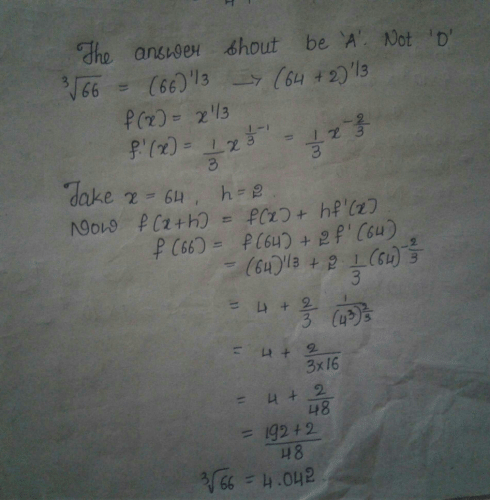 The answer shout be 'A'. Not 'D'
∛66 = (66)^1/3 → (64 + 2)^1/3
f(x) = x^1/3
f'(x) = 1/3 x^(1/3 - 1) = 1/3 x^(-2/3)
Take x = 64, h = 2.
Now f(x+h) = f(x) + hf'(x)
f(66) = f(64) + 2f'(64)
= (64)^1/3 + 2 · 1/3 (64)^(-2/3)
= 4 + 2/3 1/(4^3)^(2/3)
= 4 + 2/(3×16)
= 4 + 2/48
= (192 + 2)/48
∛66 = 4.042.